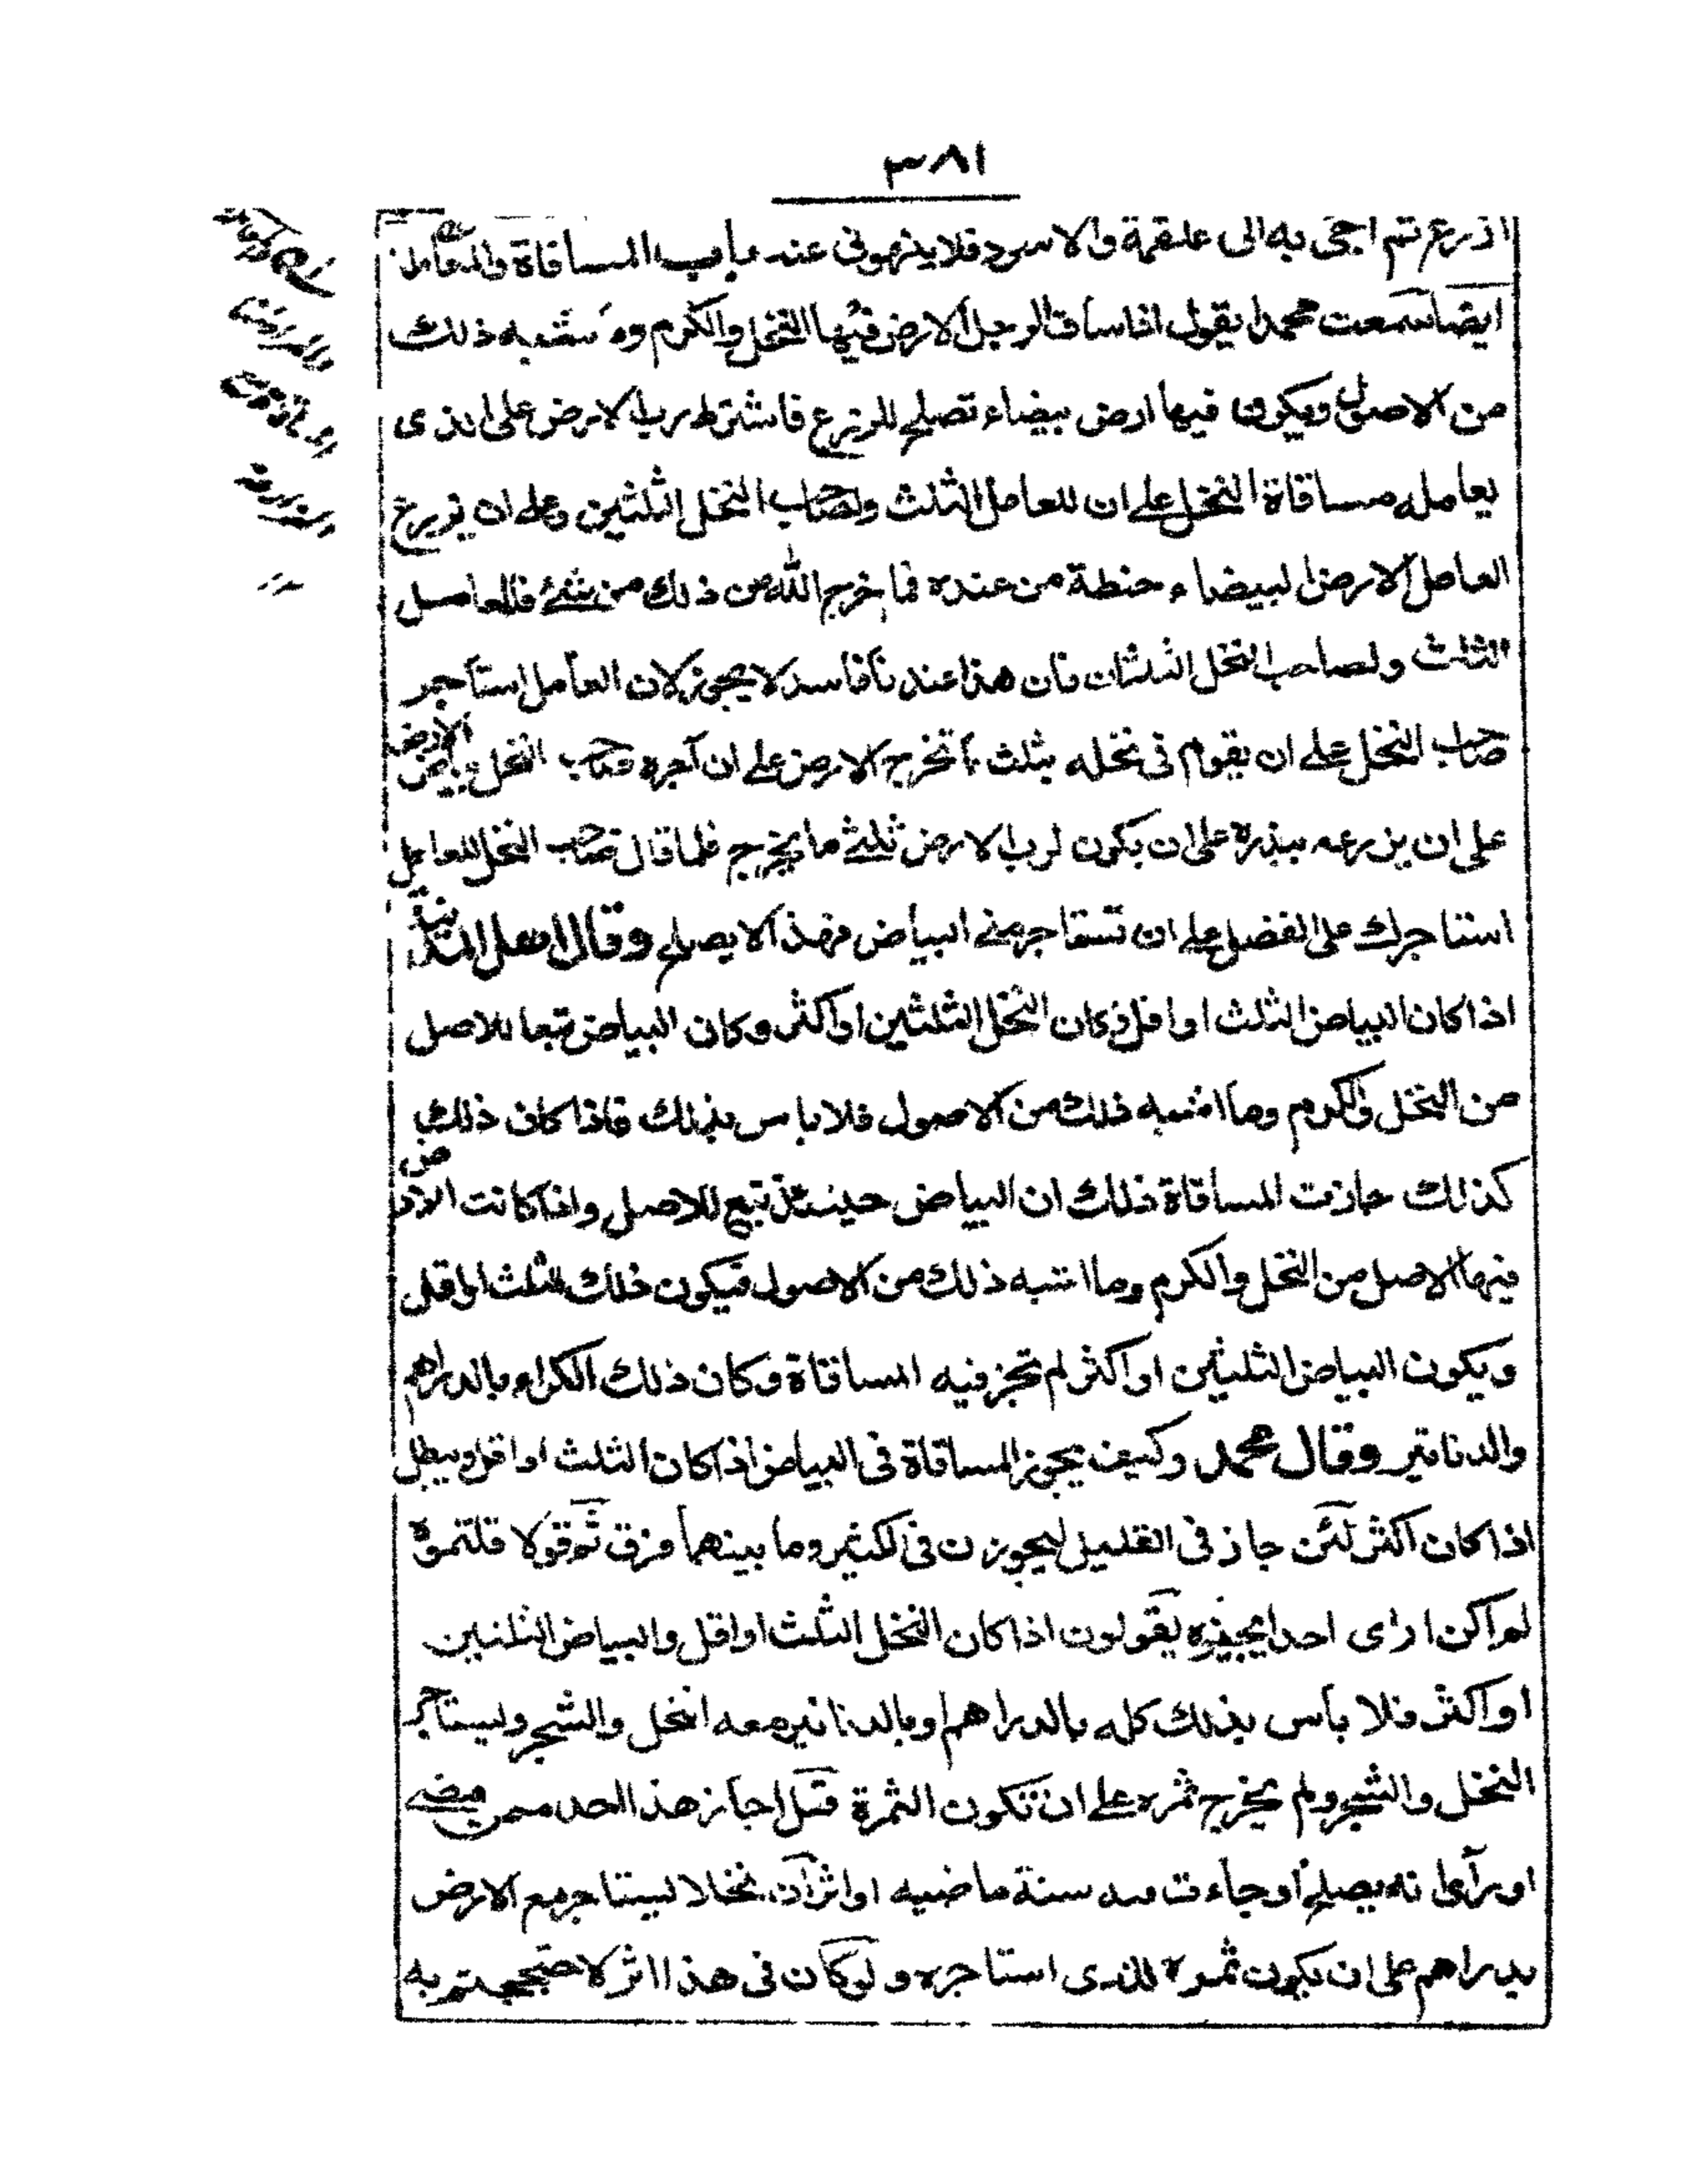 ٣٨١
ازرع ثم اجئ به الى علقمة والاسود فلا ينهونى عنه باب المساقاة والمعاملة
ايضا سمعت محمدا يقول اذا ساقا الرجل الارض فيها النخل والكرم وما شبه ذلك
من الاصول ويكون فيها ارض بيضاء تصلح للزرع فاشترط رب الارض على الذى
يعامله مساقاة النخل على ان للعامل الثلث ولصاحب النخل الثلثين وعلى ان يزرع
العامل الارض البيضاء حنطة من عنده فما اخرج الله من ذلك من شئ فللعامل
الثلث ولصاحب النخل الثلثان فان هذا عندنا فاسد لا يجوز لان العامل استاجر
صاحب النخل على ان يقوم فى نخله بثلث ما تخرج الارض على ان آجره صاحب النخل بياض الارض
على ان يزرعه ببذره على ان يكون لرب الارض ثلثى ما يخرج فلما قال صاحب النخل للعامل
استاجرك على الفضل على ان تستاجر منى البياض فهذا لا يصلح وقال اهل المدينة
اذا كان البياض الثلث او اقل وكان النخل الثلثين او اكثر وكان البياض تبعا للاصل
من النخل والكرم وما اشبه ذلك من الاصول فلا باس بذلك فاذا كان ذلك
كذلك جازت المساقاة ذلك ان البياض حينئذ تبع للاصل واذا كانت الارض
فيها الاصل من النخل والكرم وما اشبه ذلك من الاصول فيكون ذلك الثلث او اقل
ويكون البياض الثلثين او اكثر لم تجز فيه المساقاة وكان ذلك الكراء بالدراهم
والدنانير وقال محمد وكيف يجوز المساقاة فى البياض اذا كان الثلث او اقل ويبطل
اذا كان اكثر لئن جاز فى القليل ليجوزن فى الكثير وما بينهما فرق ثم قولا قلتموه
لم اكن ارى احدا يجيزه يقولون اذا كان النخل الثلث او اقل والبياض الثلثين
او اكثر فلا بأس بذلك كله بالدراهم او بالدنانير معه النخل والشجر وليستاجر
النخل والشجر ولم يخرج ثمره على ان تكون الثمرة قبل اجاز هذا احد ممن مضى
او رآى انه يصلح أو جاءت سنة ماضيه او اثر ان نخلا ليستاجر مع الارض
بدراهم على ان يكون ثمره للذى استاجره ولو كان فى هذا اثر لاحتججتم به